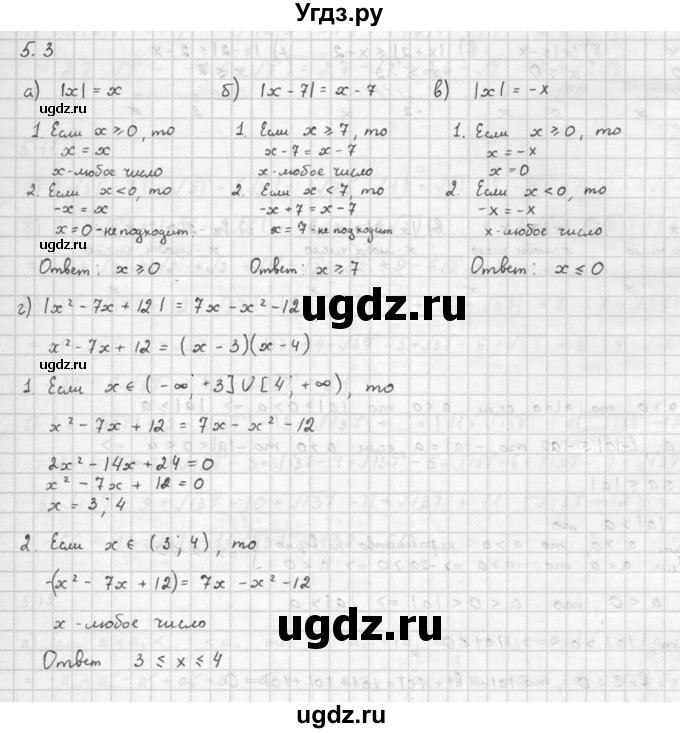 Угдз.ру
5.3
а) |x| = x б) |x - 7| = x - 7 в) |x| = -x
1 Если x ≥ 0, то 1. Если x ≥ 7, то 1. Если x ≥ 0, то
x = x x - 7 = x - 7 x = -x
x - любое число x - любое число x = 0
2. Если x < 0, то 2. Если x < 7, то 2. Если x < 0, то
-x = x -x + 7 = x - 7 -x = -x
x = 0 - не подходит x = 7 - не подходит x - любое число
ugdz.ru
Ответ: x ≥ 0 Ответ: x ≥ 7 Ответ: x ≤ 0
г) |x² - 7x + 12| = 7x - x² - 12
ugdz.ru
x² - 7x + 12 = (x - 3)(x - 4)
ugdz.ru
1 Если x ∈ (-∞; +3] ∪ [4; +∞), то
x² - 7x + 12 = 7x - x² - 12
2x² - 14x + 24 = 0
x² - 7x + 12 = 0
x = 3; 4
2. Если x ∈ (3; 4), то
-(x² - 7x + 12) = 7x - x² - 12
x - любое число
ugdz.ru
Ответ 3 ≤ x ≤ 4
ugdz.ru